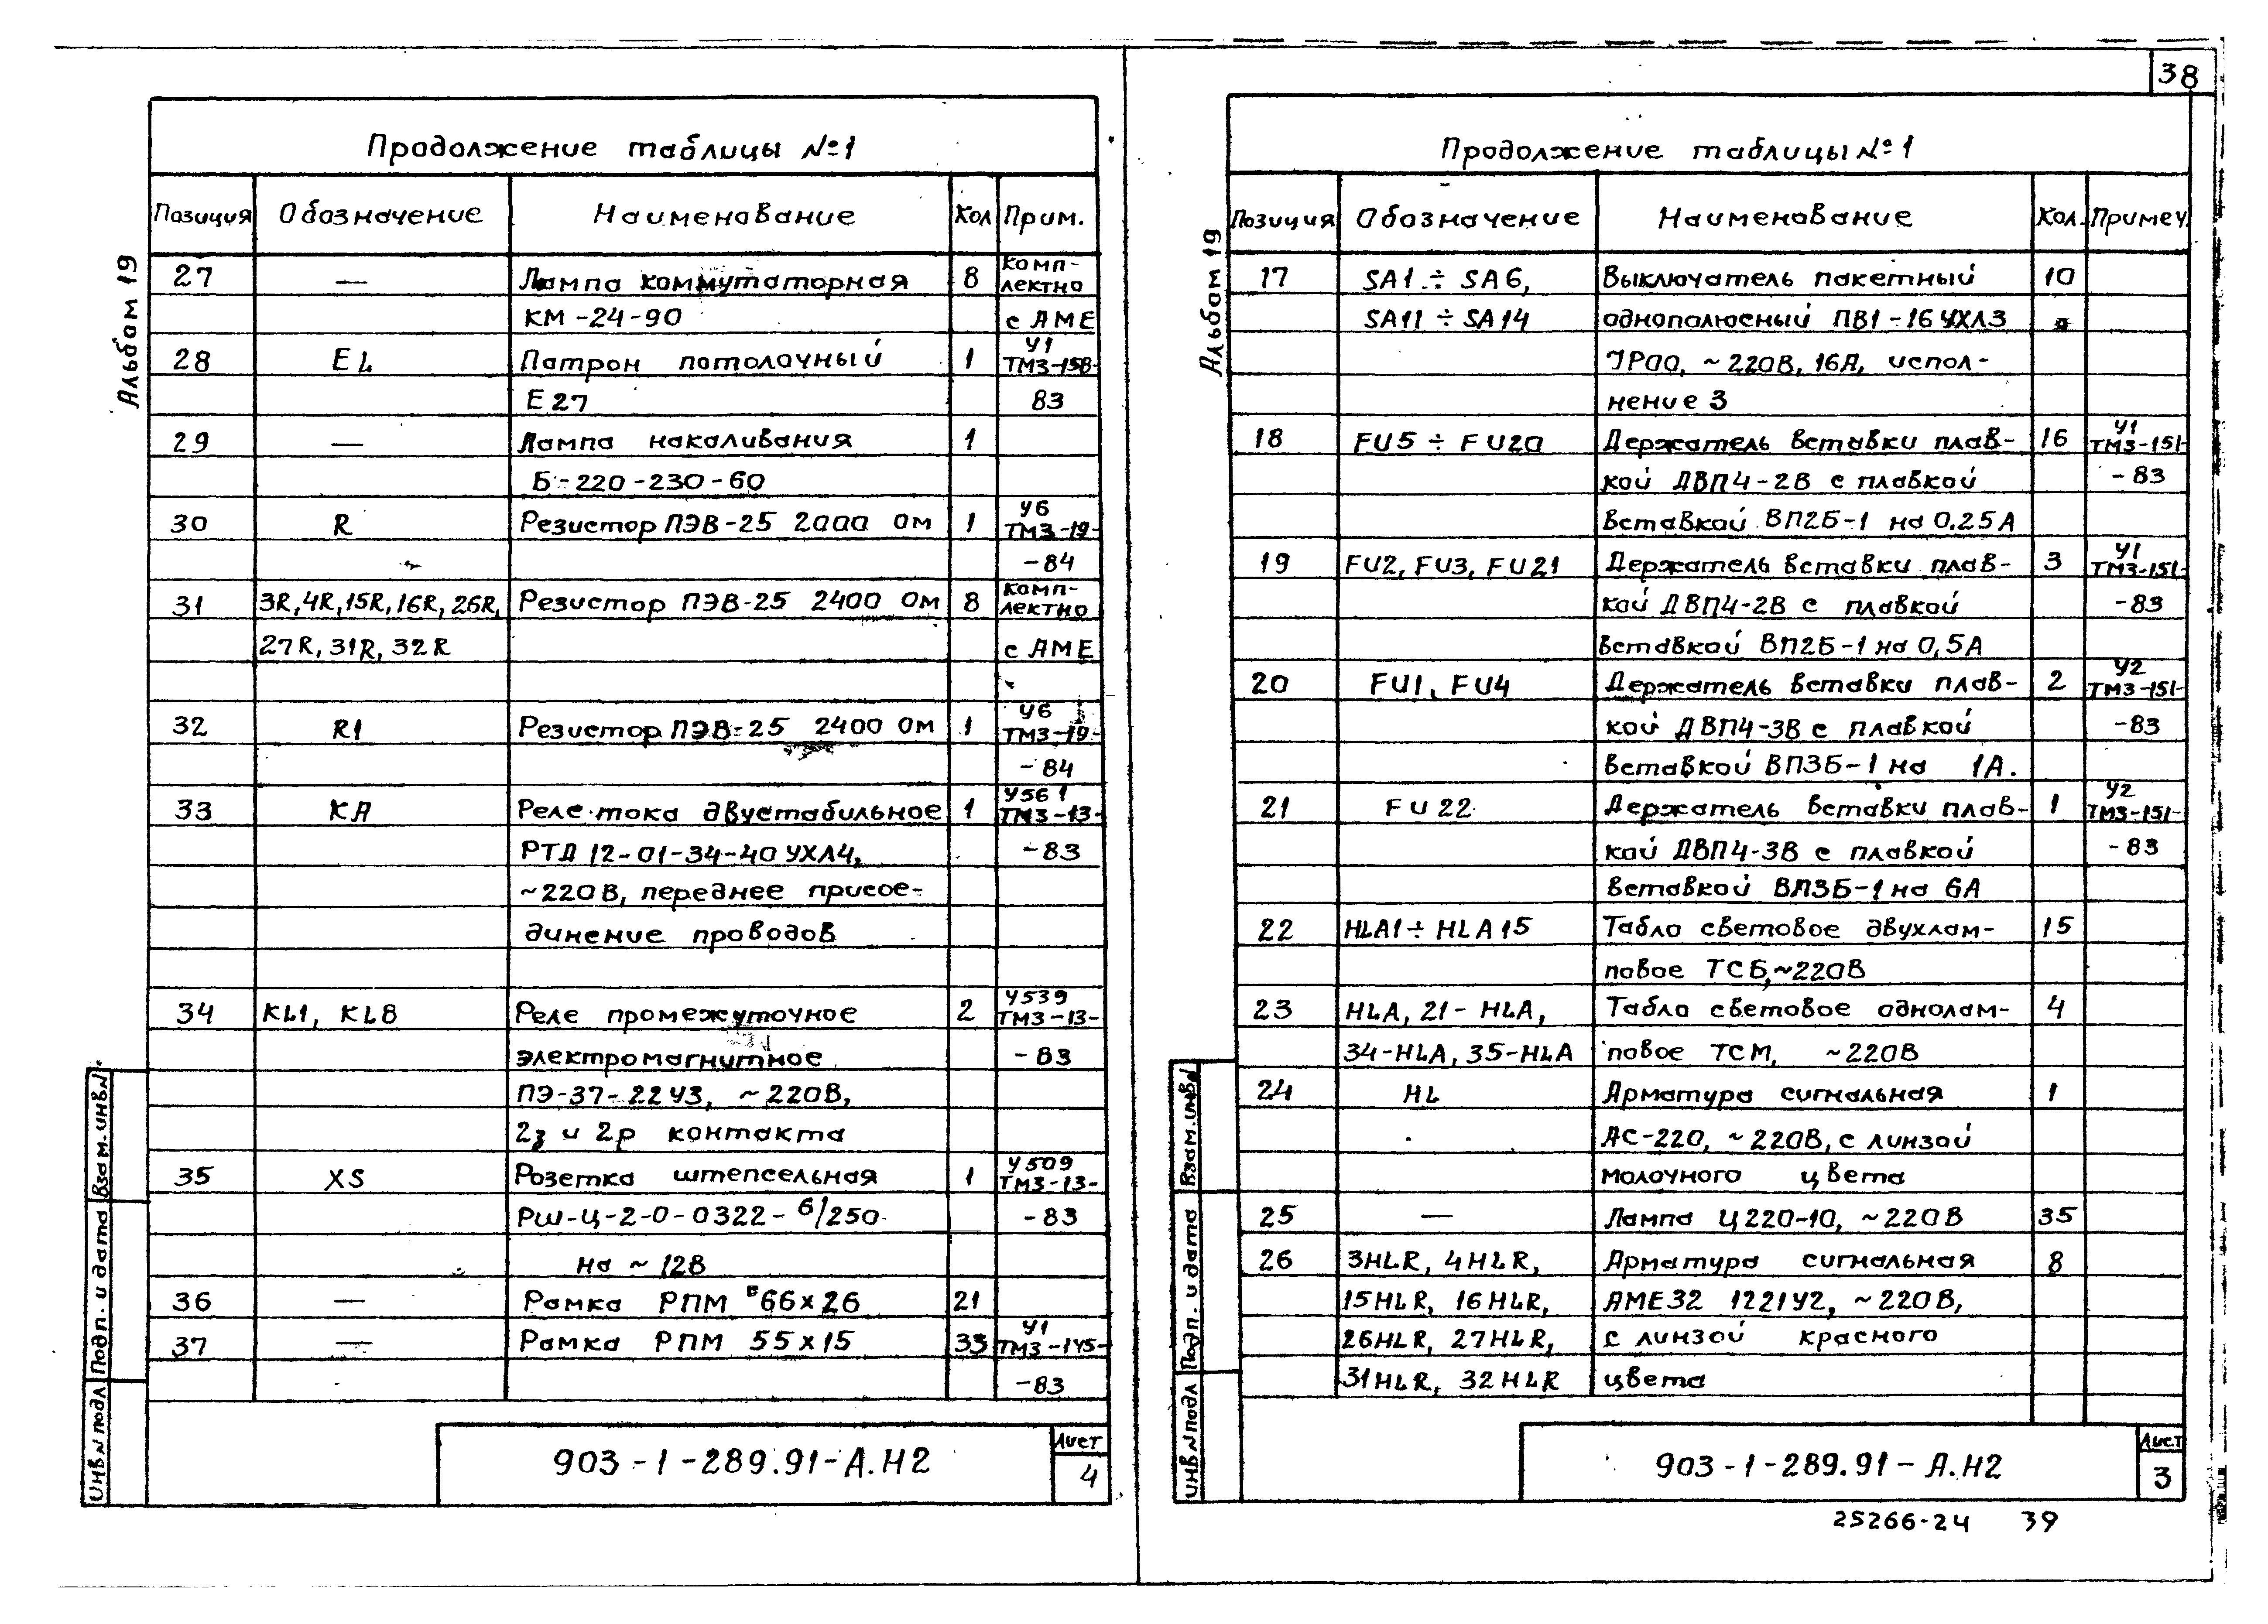 38
Продолжение таблицы №1
Позиция Обозначение Наименование Кол Прим.
27 — Лампа коммутаторная 8 комп-лектно
КМ-24-90 с АМЕ
28 EL Патрон потолочный 1 У1 ТМ3-158-
Е27 83
29 — Лампа накаливания 1
Б-220-230-60
30 R Резистор ПЭВ-25 2000 Ом 1 У6 ТМ3-19-
-84
31 3R,4R,15R,16R,26R, Резистор ПЭВ-25 2400 Ом 8 комп-лектно
27R,31R,32R с АМЕ
32 R1 Резистор ПЭВ-25 2400 Ом 1 У6 ТМ3-19-
-84
33 KA Реле тока двустабильное 1 У561 ТМ3-13-
РТД 12-01-34-40 УХЛ4, -83
~220В, переднее присое-
динение проводов
34 KL1, KL8 Реле промежуточное 2 У539 ТМ3-13-
электромагнитное -83
ПЭ-37-22У3, ~220В,
2з и 2р контакта
35 XS Розетка штепсельная 1 У509 ТМ3-13-
РШ-Ц-2-0-0322-6/250 -83
на ~12В
36 — Рамка РПМ 66х26 21
37 — Рамка РПМ 55х15 33 У1 ТМ3-145-
-83
903-1-289.91-А.Н2
Лист
4
Альбом 19
Взам.инв№
Подп. и дата
Инв№подл
Продолжение таблицы №1
Позиция Обозначение Наименование Кол. Примеч.
17 SA1÷SA6, Выключатель пакетный 10
SA11÷SA14 однополюсный ПВ1-16 УХЛ3
IP00, ~220В, 16А, испол-
нение 3
18 FU5÷FU20 Держатель вставки плав- 16 У1 ТМ3-151-
кой ДВП4-2В с плавкой -83
вставкой ВП2Б-1 на 0.25А
19 FU2, FU3, FU21 Держатель вставки плав- 3 У1 ТМ3-151-
кой ДВП4-2В с плавкой -83
вставкой ВП2Б-1 на 0,5А
20 FU1, FU4 Держатель вставки плав- 2 У2 ТМ3-151-
кой ДВП4-3В с плавкой -83
вставкой ВП3Б-1 на 1А.
21 FU22 Держатель вставки плав- 1 У2 ТМ3-151-
кой ДВП4-3В с плавкой -83
вставкой ВП3Б-1 на 6А
22 HLA1÷HLA15 Табло световое двухлам- 15
повое ТСБ,~220В
23 HLA, 21-HLA, Табло световое однолам- 4
34-HLA, 35-HLA повое ТСМ, ~220В
24 HL Арматура сигнальная 1
АС-220, ~220В, с линзой
молочного цвета
25 — Лампа Ц220-10, ~220В 35
26 3HLR, 4HLR, Арматура сигнальная 8
15HLR, 16HLR, АМЕ32 1221У2, ~220В,
26HLR, 27HLR, с линзой красного
31HLR, 32HLR цвета
903-1-289.91-А.Н2
Лист
3
Альбом 19
Взам.инв№
Подп. и дата
Инв№подл
25266-24 39